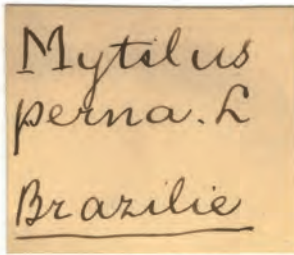 Mytilus
perna. L
Brazilie